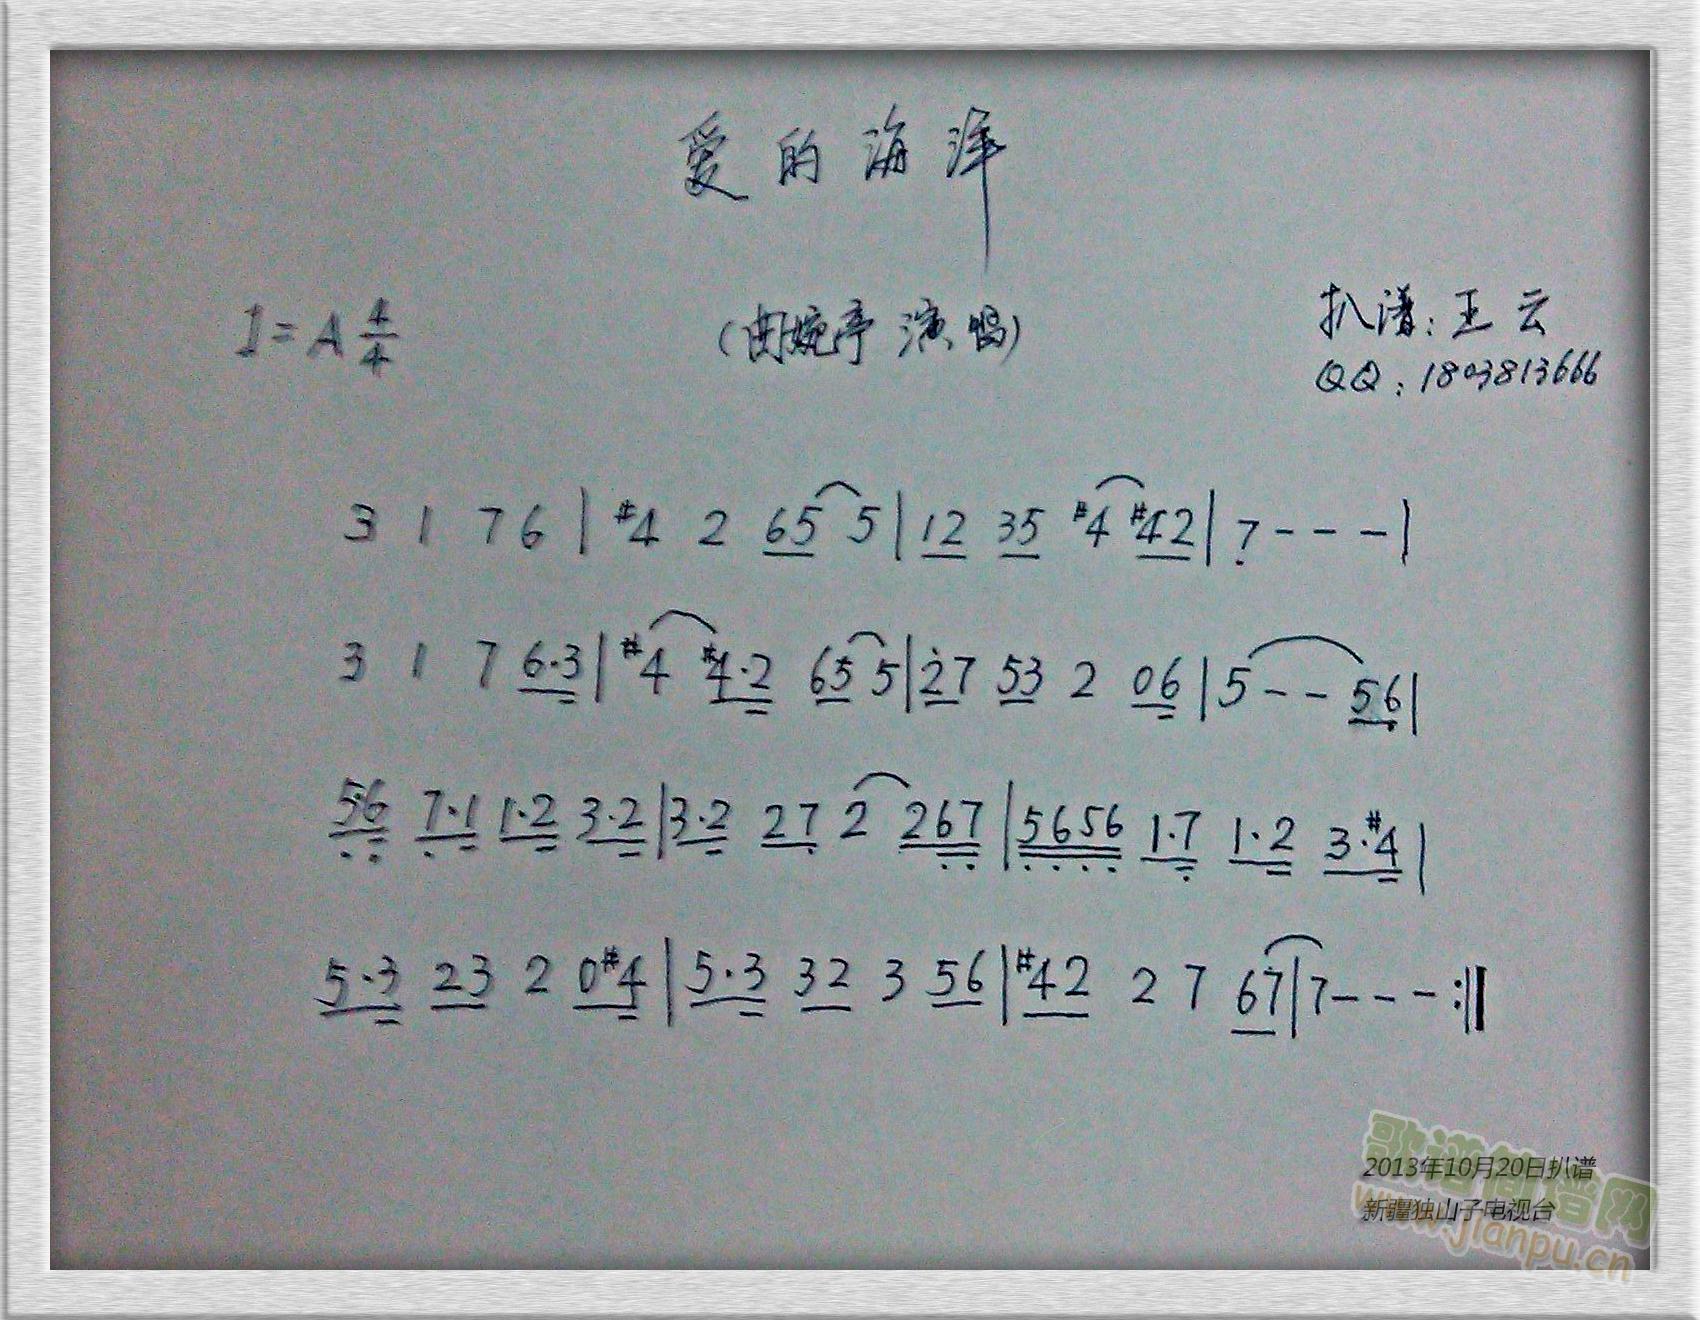 爱的海洋
1=A 4/4
(曲婉亭 演唱)
扒谱:王云
QQ:1803813666
3 1 7 6 | #4 2 65 5 | 12 35 #4 #42 | 7 - - - |
3 1 7 6·3 | #4 #4·2 65 5 | 27 53 2 06 | 5 - - 56 |
5·6 7·1 1·2 3·2 | 3·2 27 2 267 | 5656 1·7 1·2 3·#4 |
5·3 23 2 0#4 | 5·3 32 3 56 | #42 2 7 67 | 7 - - - :||
2013年10月20日扒谱
新疆独山子电视台
歌谱简谱网
www.jianpu.cn